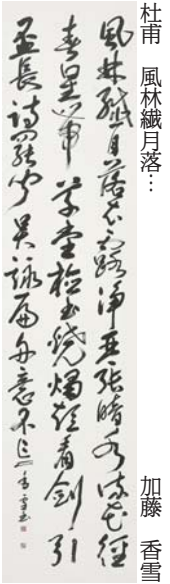 杜甫 風林繊月落… 加藤 香雪
風林纖月落衣露淨琴張暗水流花徑
春星帶草堂檢書燒燭短看劍引
盃長詩罷聞吳詠扁舟意不忘 香雪書